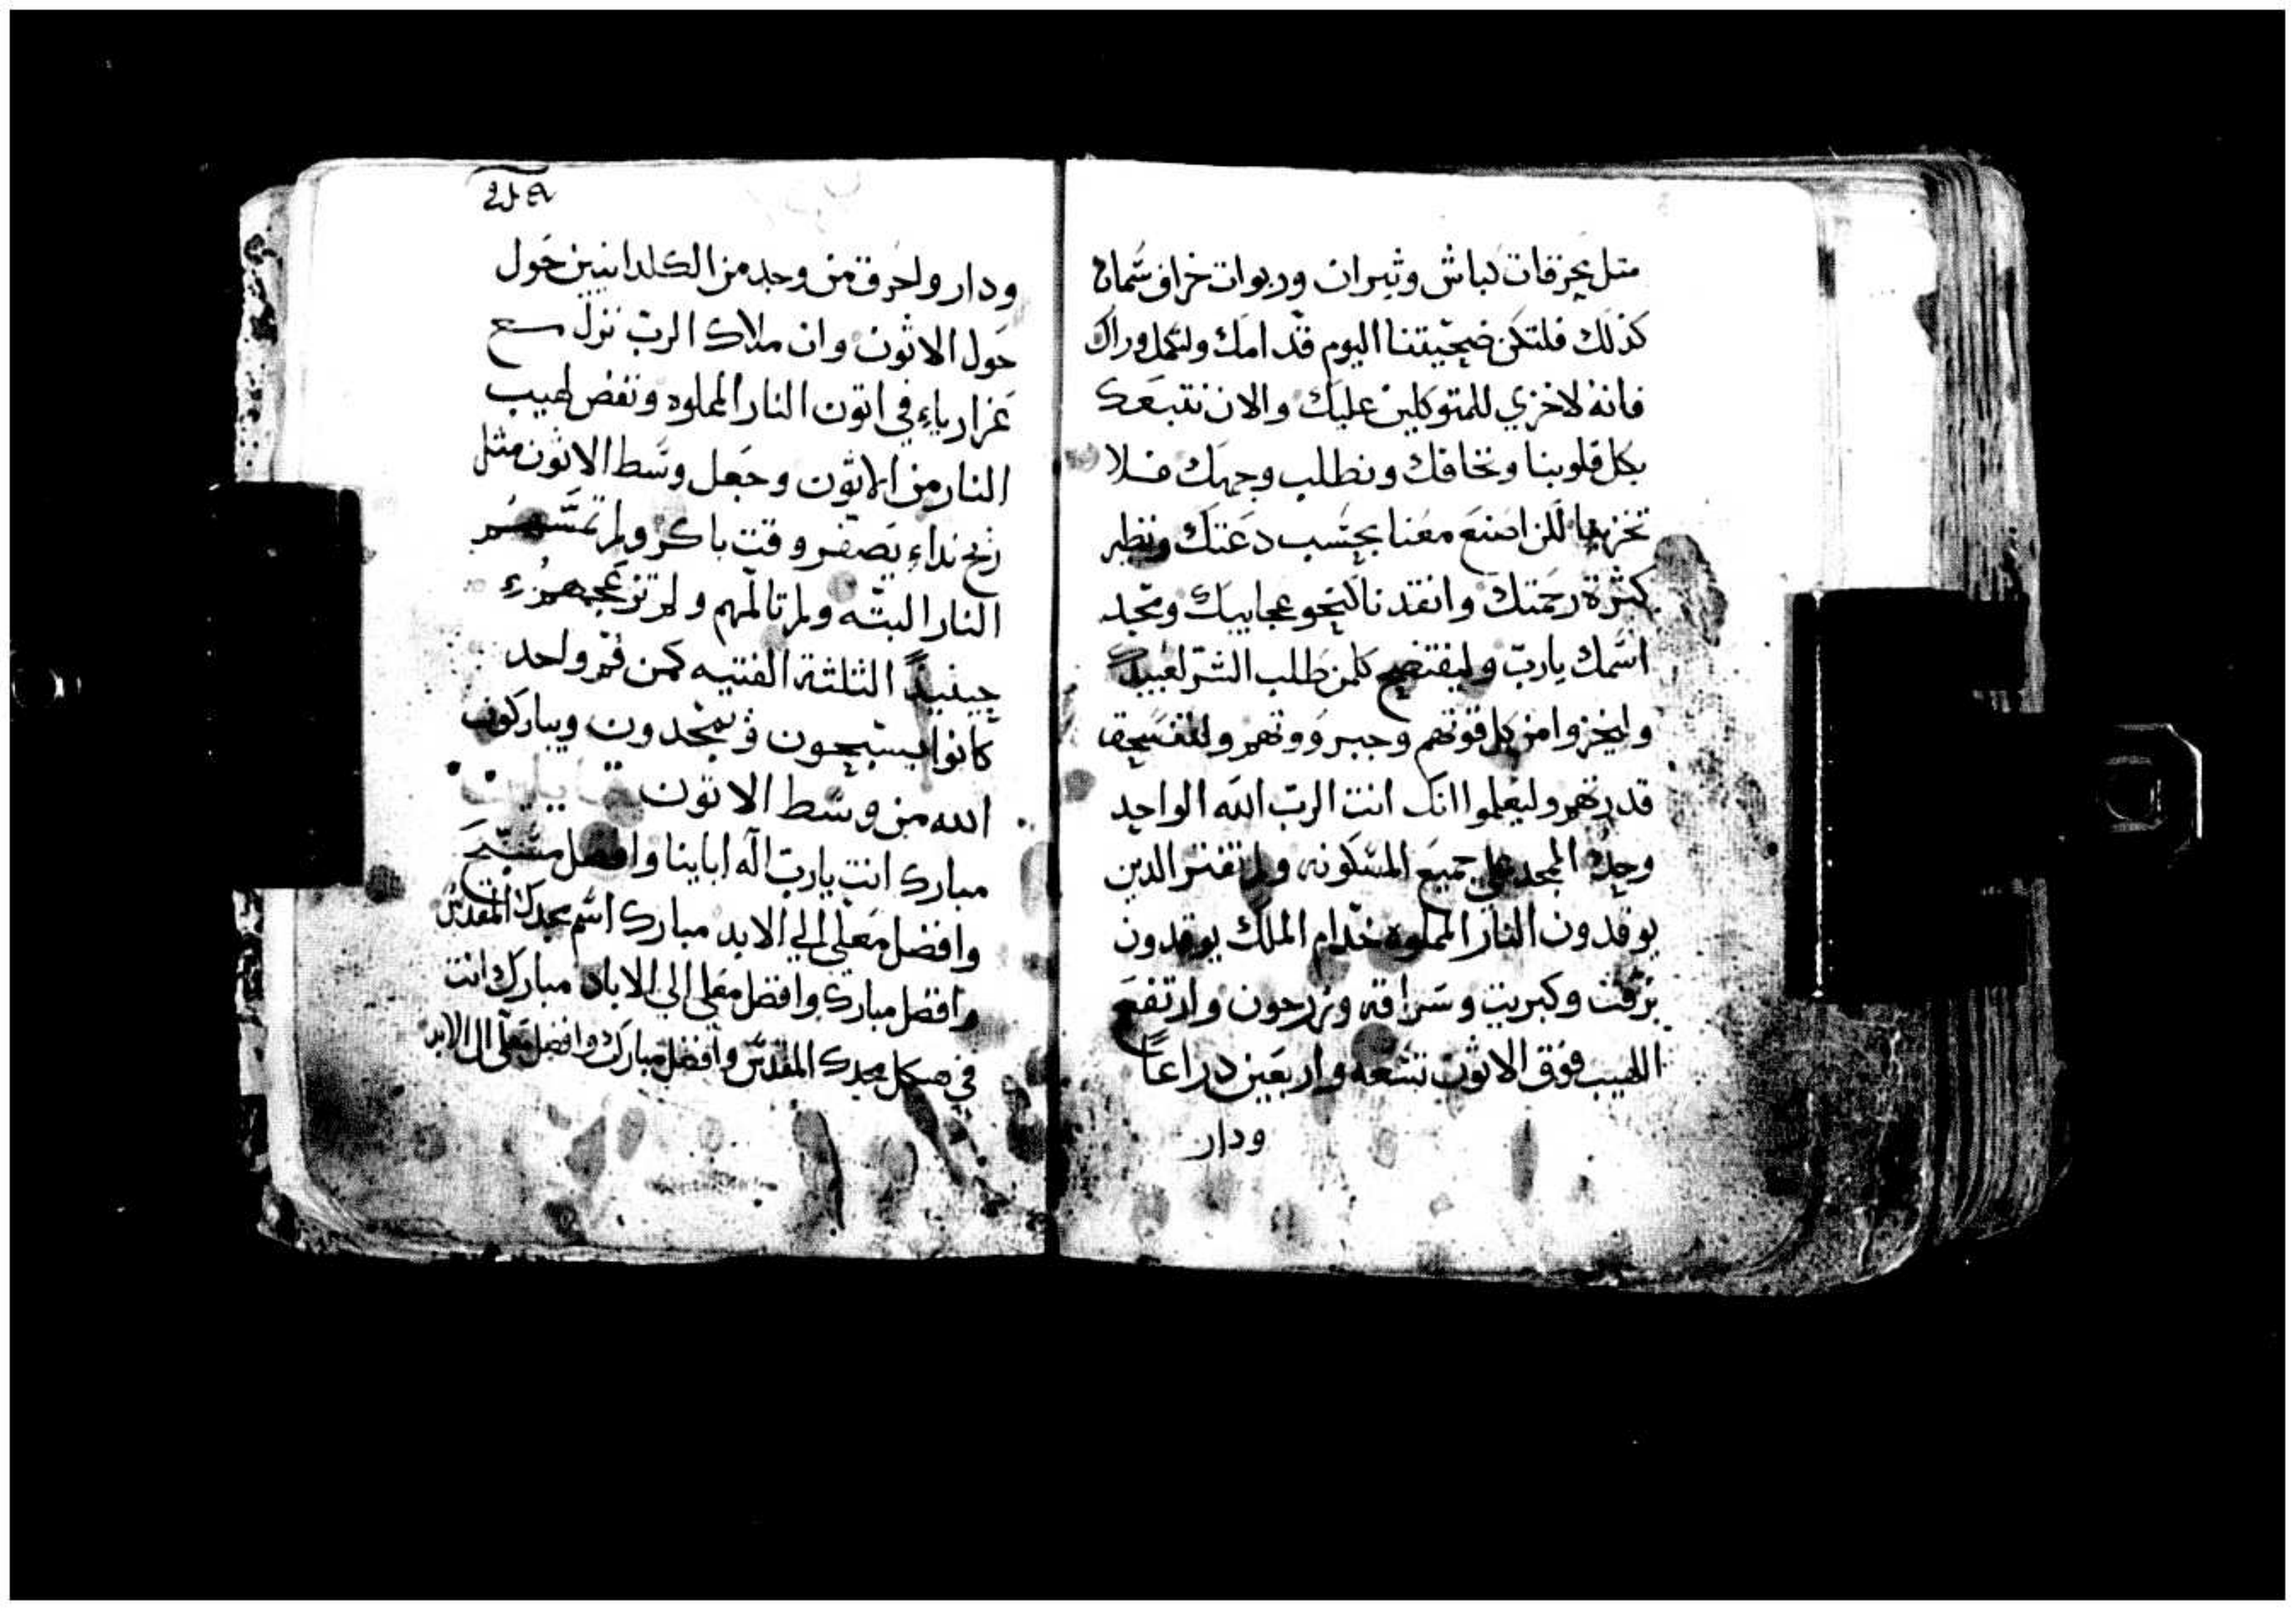 مثل محرقات كباش وثيران وربوات خراف سمان
كذلك فلتكن ضحيتنا اليوم قدامك ولتكمل وراك
فانه لا خزي للمتوكلين عليك والان نتبعك
بكل قلوبنا ونخافك ونطلب وجهك فلا
تخزينا لكن اصنع معنا بحسب دعتك ونظير
كثرة رحمتك وانقدنا كنحو عجايبك ومجد
اسمك يارب وليفتضح كلمن طلب الشر لعبيدك
وليخزوا من كل قوتهم وجبرووتهم ولتنسحق
قدرتهم وليعلموا انك انت الرب الله الواحد
وحدك الممجد علي جميع المسكونه ولم تفتر الدين
يوقدون النار المملوه خدام الملك يوقدون
بزفت وكبريت وسراقه وزرجون وارتفع
اللهيب فوق الاتون تسعه واربعين دراعًا
ودار
ودار واحرق من وجد من الكلدانيين حول
حول الاتون وان ملاك الرب نزل مع
عزارياء في اتون النار المملوه ونفض لهيب
النار من الاتون وجعل وسط الاتون مثل
ريح نداء يصفر وقت باكر ولم تمسهم
النار البته ولم تالمهم ولم تزعجهم
حينيدًا الثلثة الفتيه كمن فم واحد
كانوا يسبحون ويمجدون ويباركون
الله من وسط الاتون
مبارك انت يارب اله اباينا وافضل مسبح
وافضل معلي الي الابد مبارك اسم مجدك المقدس
وافضل مبارك وافضل معلي الي الاباد مبارك انت
في هيكل مجدك المقدس وافضل مبارك وافضل معلي الي الابد